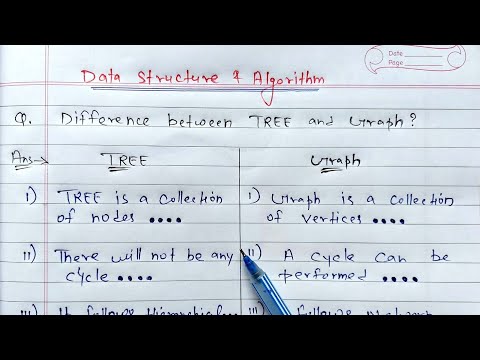 Date
Page
Data Structure & Algorithm
Q. Difference between TREE and Graph?
Ans→ TREE Graph
I) TREE is a collection I) Graph is a collection
of nodes .... of vertices ....
II) There will not be any II) A cycle can be
cycle .... performed ....
III) It follows
follows